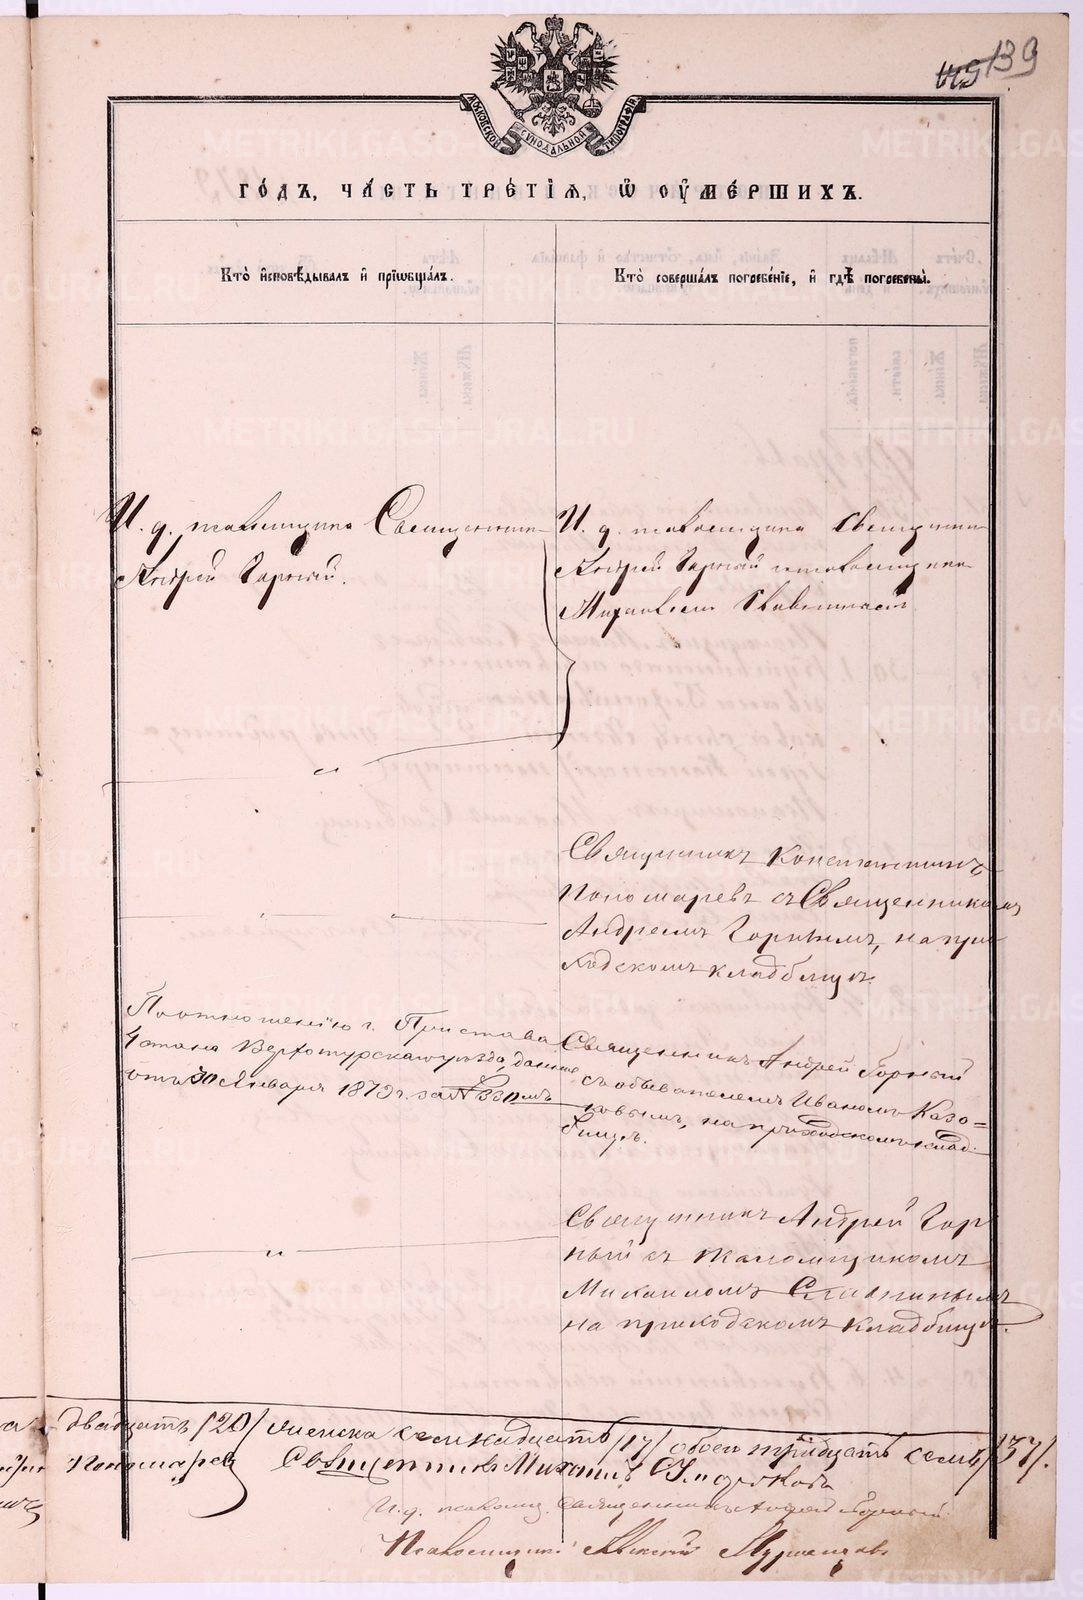 139
МОСКОВСКОЙ СѴНОДАЛЬНОЙ ТИПОГРАФІИ
ГО́ДЪ, ЧА́СТЬ ТРЕ́ТІЯ, Ѽ ОУ҆МЕ́РШИХЪ.
Кто̀ и҆сповѣ́дывалъ и҆ прїѡбща́лъ.
Кто̀ соверша́лъ погребе́нїе, и҆ гдѣ̀ погребены̀.
И. д. псаломщика Священникъ
Андрей Горный.
И. д. псаломщика Священникъ
Андрей Горный псаломщикъ
Михаилъ
Священникъ Константинъ
Пономаревъ съ Священникомъ
Андреемъ Горнымъ, на при-
ходскомъ кладбищѣ.
По отношенію г. Пристава
4 стана Верхотурскаго уѣзда, данное
отъ 30 Января 1879 г. за №
Священникъ Андрей Горный
съ обывателемъ Иваномъ Казо=
ковымъ, на приходскомъ клад-
бищѣ.
Священникъ Андрей Гор
ный съ псаломщикомъ
Михаиломъ
на приходскомъ кладбищѣ.
двадцать /20/ женска семнадцать /17/ обоего тридцать семь /37/.
Пономаревъ Священникъ Михаилъ
И. д. псаломщ. Священникъ Андрей Горный
Псаломщикъ Алексій